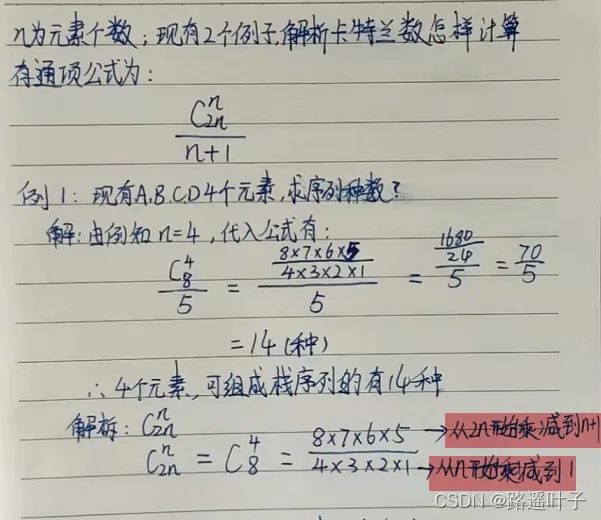 n为元素个数;现有2个例子,解析卡特兰数怎样计算
有通项公式为:
C_{2n}^{n} / (n+1)
例1:现有A.B.C.D4个元素,求序列种数?
解:由例知 n=4,代入公式有:
C_8^4 / 5 = ((8×7×6×5)/(4×3×2×1)) / 5 = (1680/24) / 5 = 70/5
=14(种)
∴4个元素,可组成栈序列的有14种
解析:C_{2n}^{n}
C_{2n}^{n} = C_8^4 = (8×7×6×5)/(4×3×2×1)
→从2n开始乘,减到n+1
→从n开始乘减到1
CSDN @路遥叶子